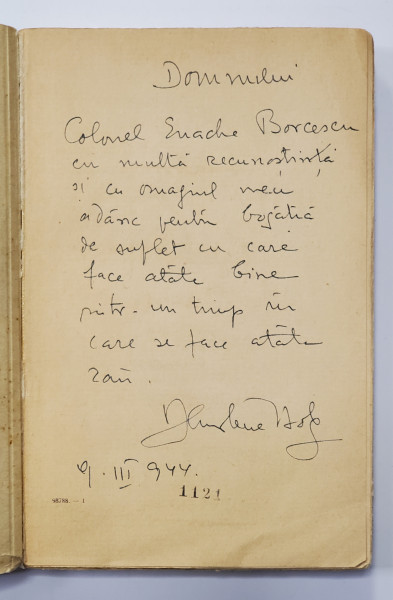 Domnului
Colonel Enache Borcescu
cu multă recunoștință
și cu omagiul meu
adânc pentru bogăția
de suflet cu care
face atâta bine
într-un timp în
care se face atâta
rău.
9. III 944.
1121
98788. — 1